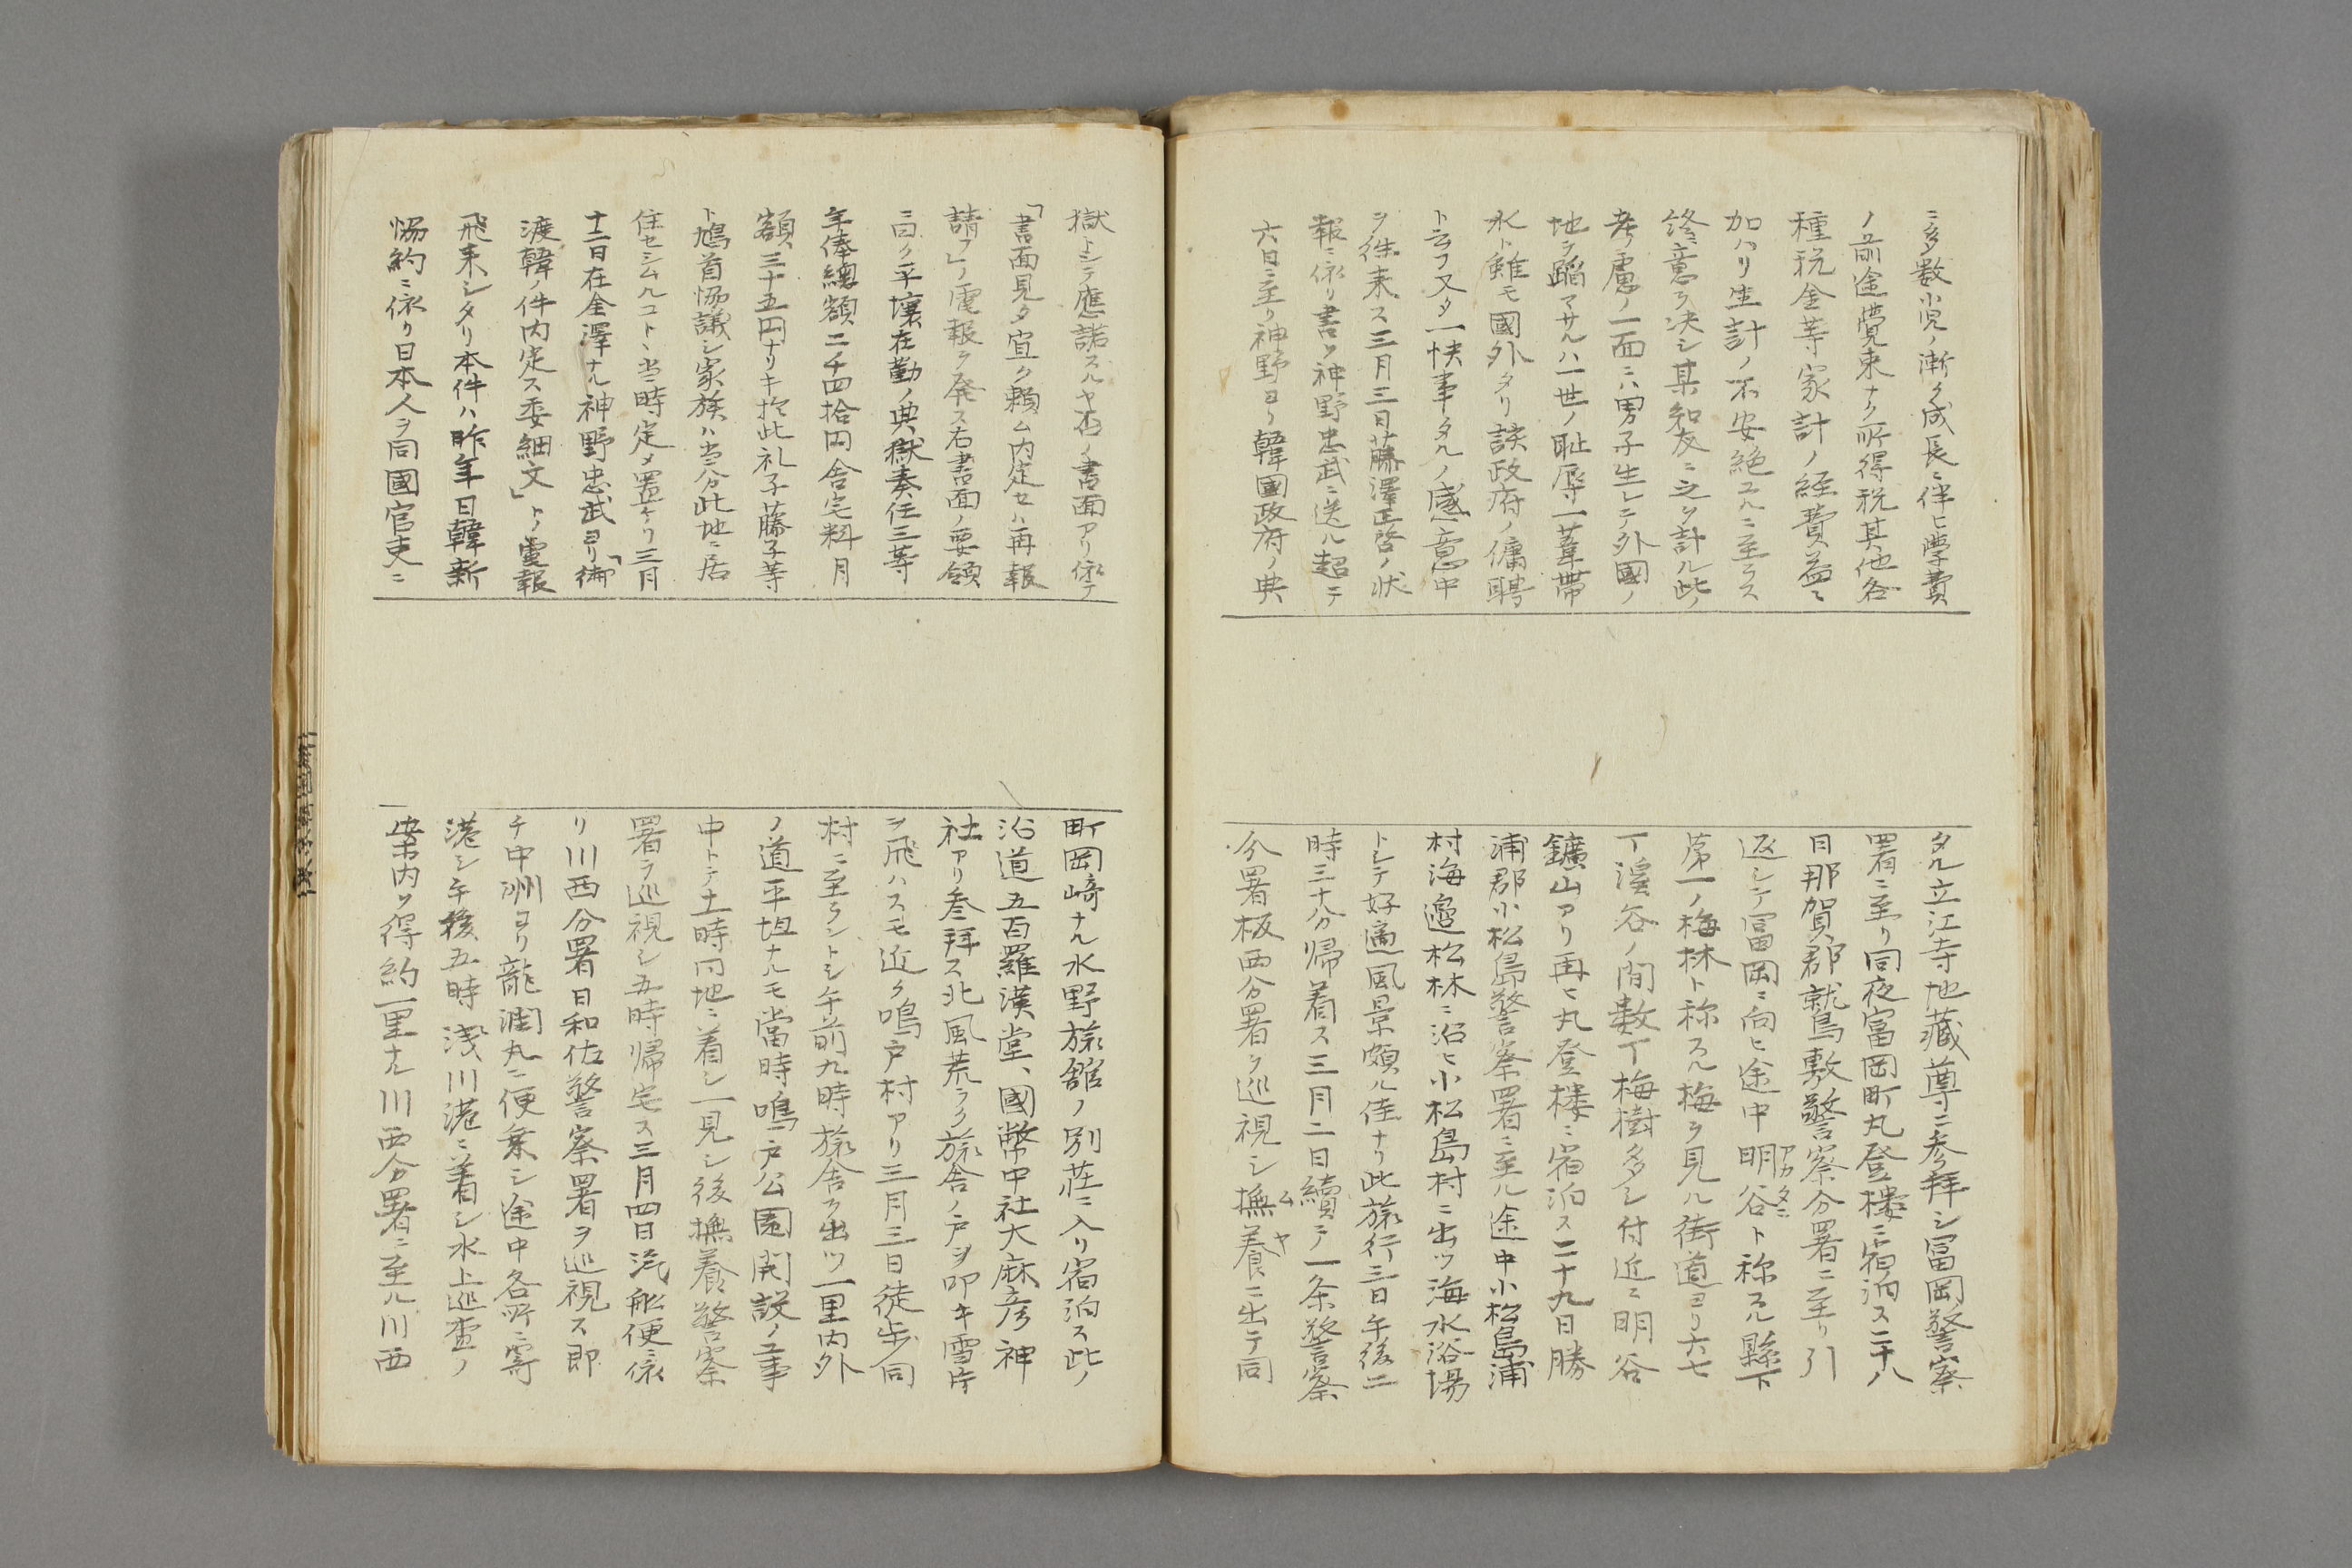 ニ多数小児ノ漸ク成長ニ伴ヒ學費
ノ前途覺束ナク所得税其他各
種税金等家計ノ経費益〻
加ハリ生計ノ不安絶ユルニ至ラス
終ニ意ヲ决シ某知友ニ之ヲ計ル此ノ
考慮ノ一面ニハ男子生レテ外國ノ
地ヲ蹈マサルハ一世ノ耻辱一葦帯
水ト雖モ國外タリ該政府ノ傭聘
ト云フ又タ一快事タルノ感意中
ヲ徃来ス三月三日藤澤正啓ノ状
報ニ依リ書ヲ神野忠武ニ送ル超テ
六日ニ至リ神野ヨリ韓國政府ノ典
タル立江寺地藏尊ニ参拜シ冨岡警察
署ニ至リ同夜富岡町丸登楼ニ宿泊ス二十八
日那賀郡鷲敷警察分署ニ至リ引
返シテ冨岡ニ向ヒ途中明谷ト称スル縣下
アカタニ
第一ノ梅林ト称スル梅ヲ見ル街道ヨリ六七
丁溪谷ノ間数丁梅樹多シ付近ニ明谷
鑛山アリ再ヒ丸登楼ニ宿泊ス二十九日勝
浦郡小松島警察署ニ至ル途中小松島浦
村海邉松林ニ沿ヒ小松島村ニ出ツ海水浴場
トシテ好適風景頗ル佳ナリ此旅行三日午後二
時三十分帰着ス三月二日續テ一条警察
分署板西分署ヲ巡視シ撫養ニ出テ同
ムヤ
獄トシテ應諾スルヤ否ノ書面アリ依テ
「書面見タ宜ク頼ム内定セハ再報
請フ」ノ電報ヲ発ス右書面ノ要領
ニ曰ク平壤在勤ノ典獄奏任三等
年俸總額二千四拾円舎宅料月
額三十五円ナリキ於此礼子藤子等
ト鳩首協議シ家族ハ当分此地ニ居
住セシムルコトヽ当時定メ置ケリ三月
十二日在金澤ナル神野忠武ヨリ「御
渡韓ノ件内定ス委細文」トノ電報
飛来シタリ本件ハ昨年日韓新
協約ニ依リ日本人ヲ同國官吏ニ
町岡崎ナル水野旅舘ノ別荘ニ入リ宿泊ス此ノ
沿道五百羅漢堂、國幣中社大麻彦神
社アリ参拜ス北風荒ラク旅舎ノ戸ヲ叩キ雪片
ヲ飛ハスモ近ク鳴戸村アリ三月三日徒歩同
村ニ至ラントシ午前九時旅舎ヲ出ツ一里内外
ノ道平坦ナルモ當時鳴戸公園開設ノ工事
中トテ十一時同地ニ着シ一見シ後撫養警察
署ヲ巡視シ五時帰宅ス三月四日汽船便ニ依
リ川西分署日和佐警察署ヲ巡視ス即
チ中洲ヨリ龍潤丸ニ便乗シ途中各所ニ寄
港シ午後五時浅川港ニ着シ水上巡査ノ
案内ヲ得約一里ナル川西分署ニ至ル川西